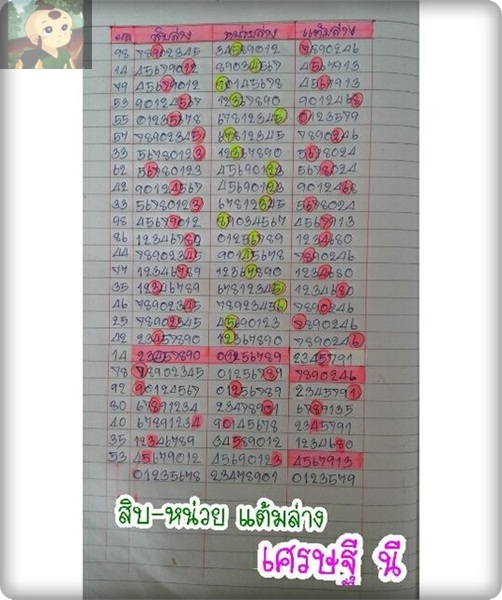 ผล สิบล่าง หน่วยล่าง แต้มล่าง
98 78902345 34569012 7890246
14 45679012 89034567 4567913
79 45679012 80145678
53 90124567 12367890 9012468
55 01235678 67812345 0123579
57 78902345 67812345 7890246
33 56780123 12367890 5678024
62 56780123 45690123 5678024
42 90124567 45690123 9012468
33 56780123 67812345 5678024
98 45679012 89034567 4567913
86 12346789 01256789 1234680
44 78902345 90145678 7890246
77 12346789 12367890 1234680
35 12346789 67812345 1234680
46 78902345 78923456 7890246
25 78902345 45690123 7890246
42 23457890 12367890 7890246
14 23457890 01256789 2345791
78 78902345 01256789 7890246
92 90124567 01256789 2345791
80 67891234 23478901 6789135
40 67891234 90145678 2345791
35 12346789 34589012 1234680
53 45679012 45690123 4567913
01235678 23478901 0123579
สิบ-หน่วย แต้มล่าง
เศรษฐี นี